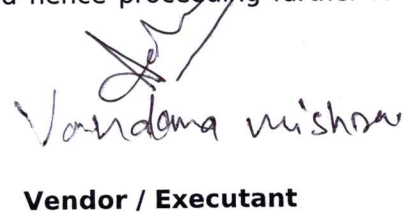 hence proceeding further
Vandana Mishra
Vendor / Executant